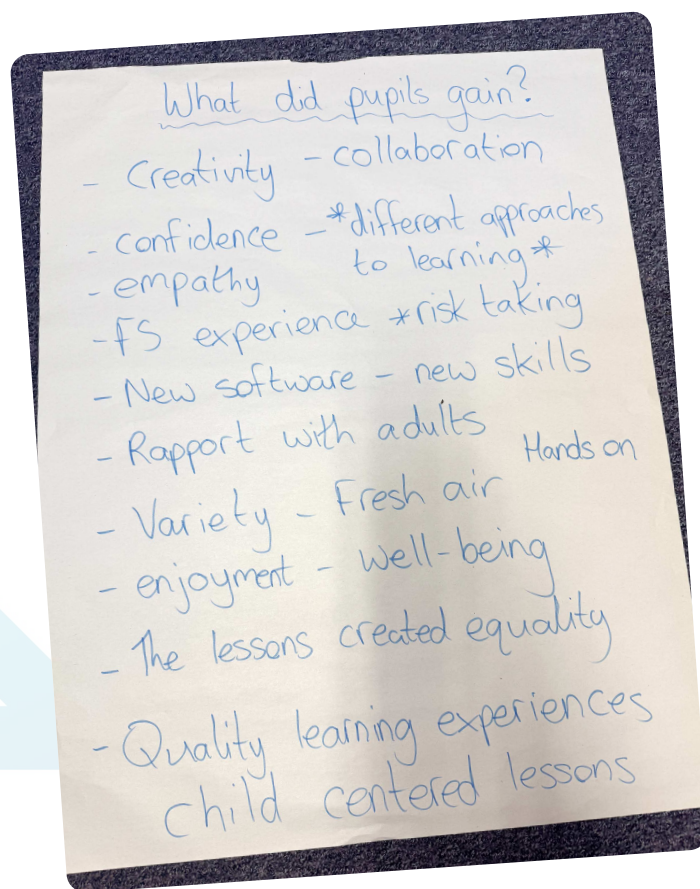 What did pupils gain?
- Creativity - collaboration
- confidence - *different approaches
to learning*
- empathy
- FS experience *risk taking
- New software - new skills
- Rapport with adults
Hands on
- Variety - Fresh air
- enjoyment - well-being
- The lessons created equality
- Quality learning experiences
child centered lessons